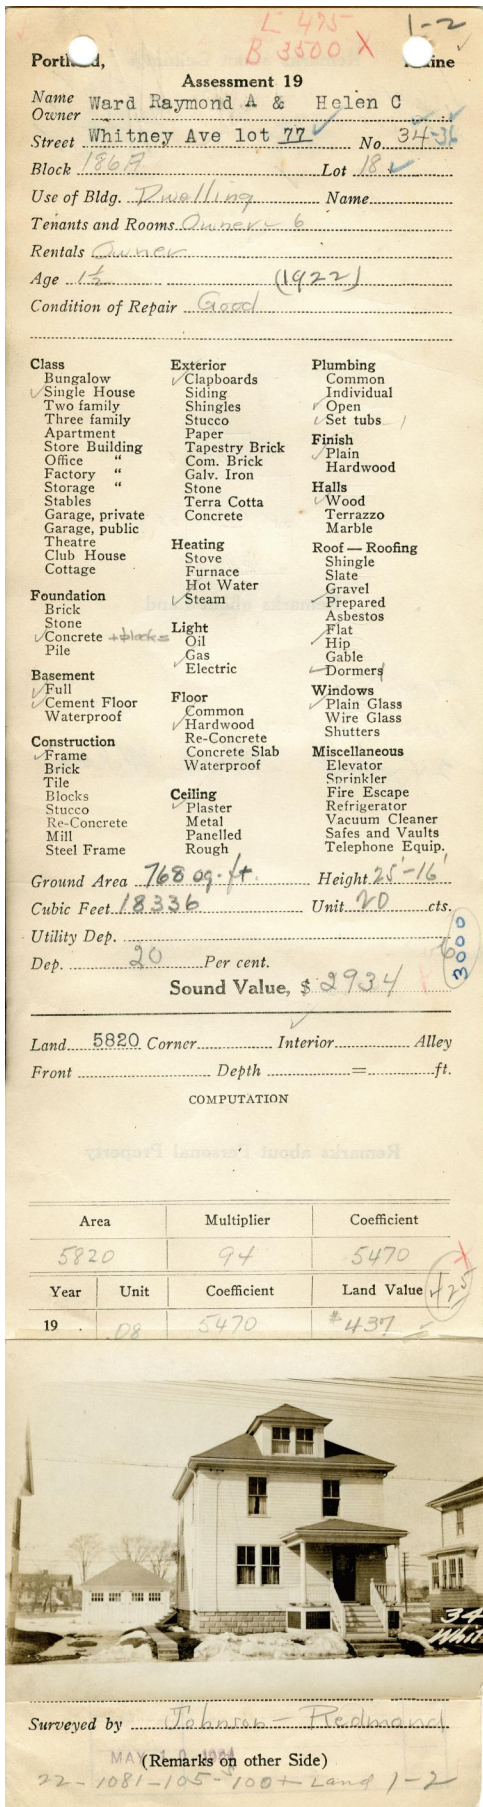 L 475
B 3500 X
1-2
Portland, Maine
Assessment 19
Name Owner Ward Raymond A & Helen C
Street Whitney Ave lot 77 No. 34-36
Block 186A Lot 18
Use of Bldg. Dwelling Name
Tenants and Rooms Owner - 6
Rentals Owner
Age 1½ (1922)
Condition of Repair Good
Class
Bungalow
Single House
Two family
Three family
Apartment
Store Building
Office "
Factory "
Storage "
Stables
Garage, private
Garage, public
Theatre
Club House
Cottage
Foundation
Brick
Stone
Concrete + blocks
Pile
Basement
Full
Cement Floor
Waterproof
Construction
Frame
Brick
Tile
Blocks
Stucco
Re-Concrete
Mill
Steel Frame
Exterior
Clapboards
Siding
Shingles
Stucco
Paper
Tapestry Brick
Com. Brick
Galv. Iron
Stone
Terra Cotta
Concrete
Heating
Stove
Furnace
Hot Water
Steam
Light
Oil
Gas
Electric
Floor
Common
Hardwood
Re-Concrete
Concrete Slab
Waterproof
Ceiling
Plaster
Metal
Panelled
Rough
Plumbing
Common
Individual
Open
Set tubs 1
Finish
Plain
Hardwood
Halls
Wood
Terrazzo
Marble
Roof — Roofing
Shingle
Slate
Gravel
Prepared
Asbestos
Flat
Hip
Gable
Dormers
Windows
Plain Glass
Wire Glass
Shutters
Miscellaneous
Elevator
Sprinkler
Fire Escape
Refrigerator
Vacuum Cleaner
Safes and Vaults
Telephone Equip.
Ground Area 768 sq. ft. Height 25'-16'
Cubic Feet 18336 Unit 20 cts.
Utility Dep.
Dep. 20 Per cent.
3000
Sound Value, $ 2934
Land 5820 Corner Interior Alley
Front Depth = ft.
COMPUTATION
Area Multiplier Coefficient
5820 94 5470
Year Unit Coefficient Land Value 425
19 .08 5470 $437
34
Whit
Surveyed by Johnson - Redmond
MAY
(Remarks on other Side)
22-1081-105-100+ Land 1-2